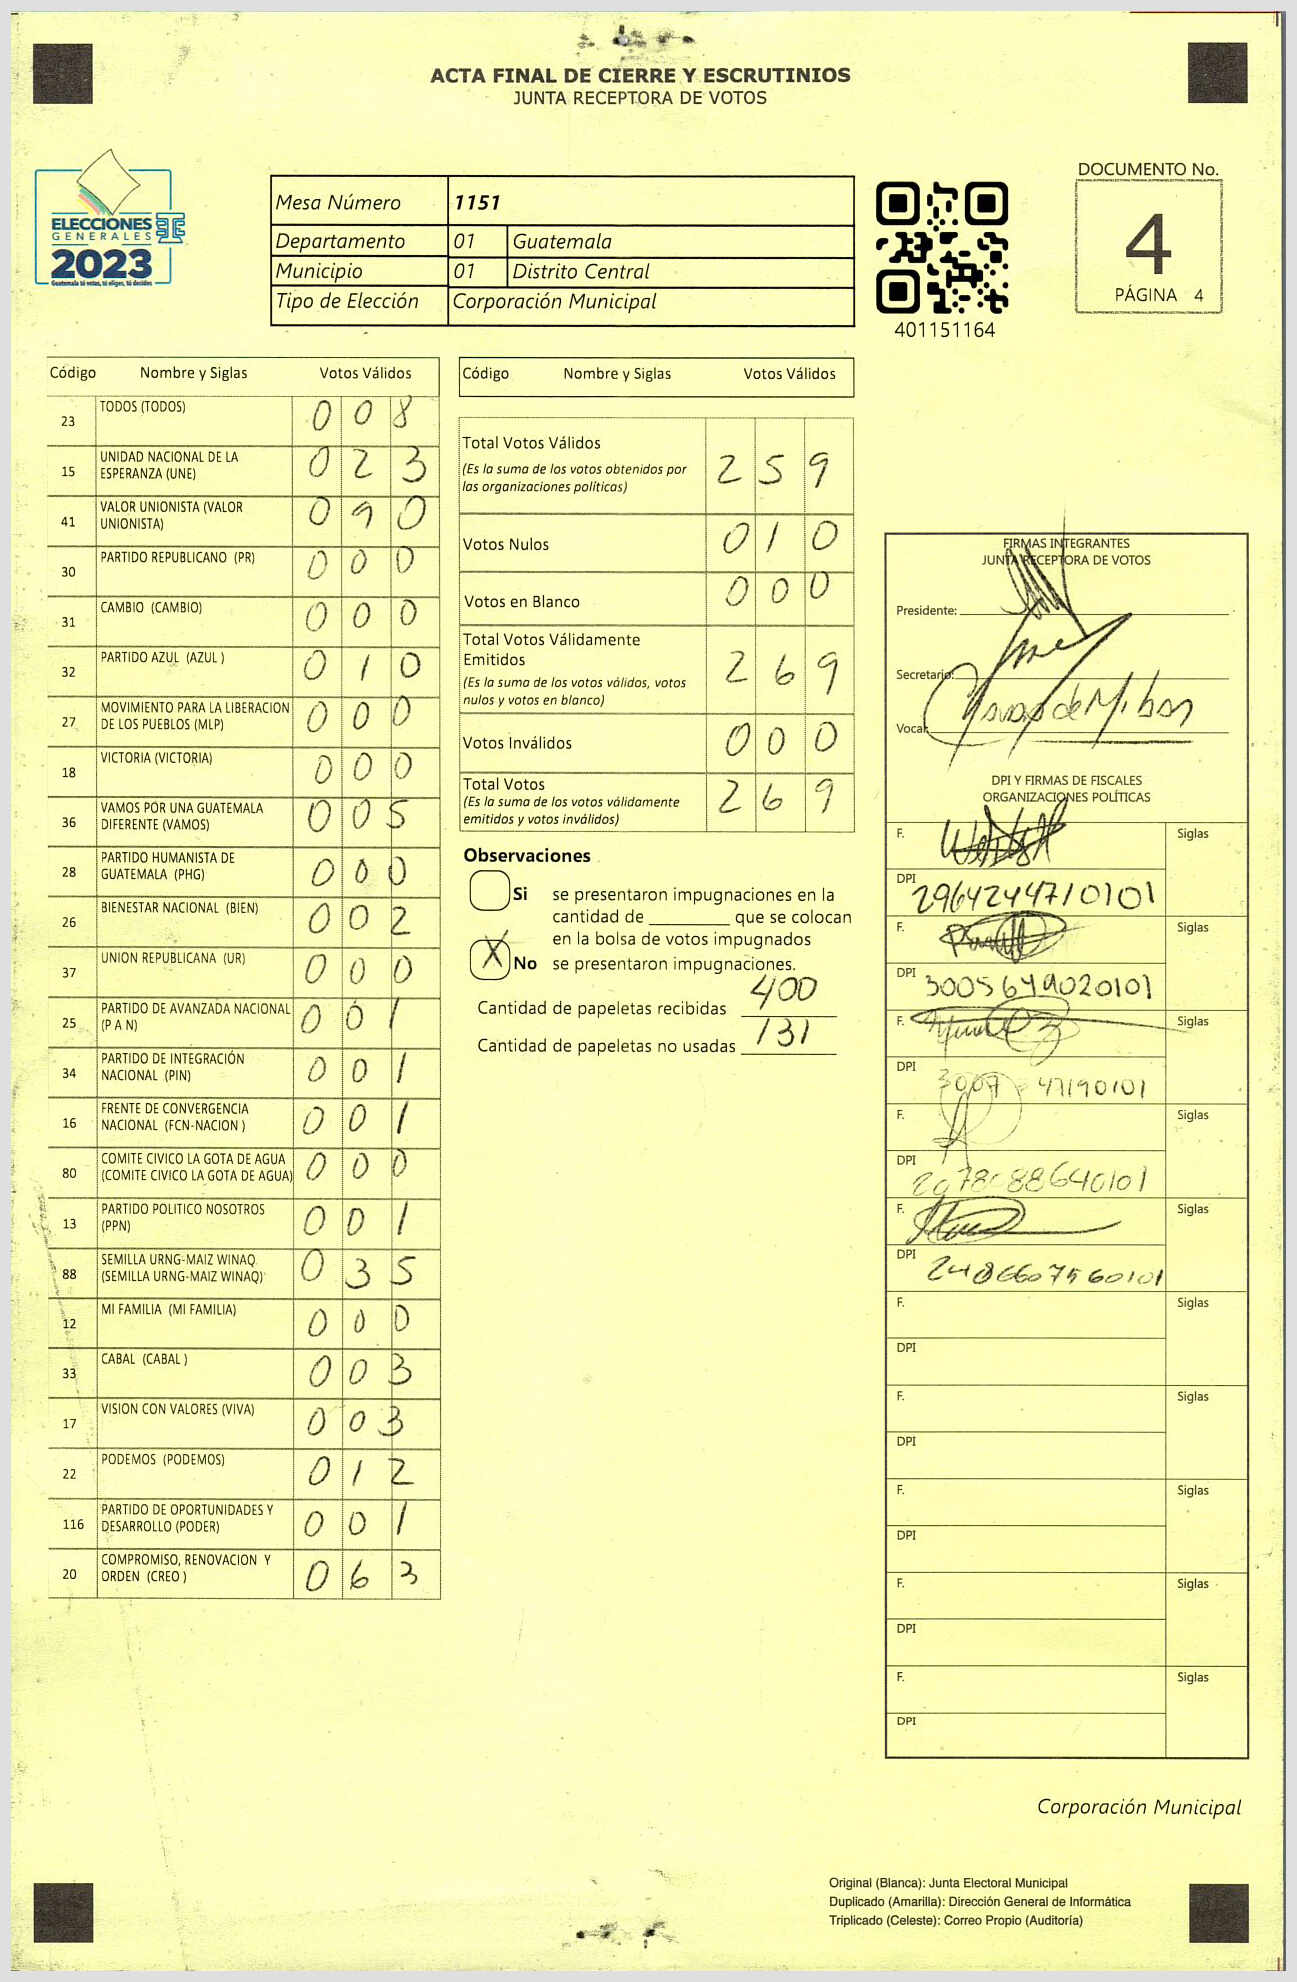 ACTA FINAL DE CIERRE Y ESCRUTINIOS
JUNTA RECEPTORA DE VOTOS
ELECCIONES
GENERALES
2023
Guatemala tú votas, tú eliges, tú decides
Mesa Número 1151
Departamento 01 Guatemala
Municipio 01 Distrito Central
Tipo de Elección Corporación Municipal
401151164
DOCUMENTO No.
4
PÁGINA 4
Código Nombre y Siglas Votos Válidos
23 TODOS (TODOS) 0 0 8
15 UNIDAD NACIONAL DE LA
ESPERANZA (UNE) 0 2 3
41 VALOR UNIONISTA (VALOR
UNIONISTA) 0 9 0
30 PARTIDO REPUBLICANO (PR) 0 0 0
31 CAMBIO (CAMBIO) 0 0 0
32 PARTIDO AZUL (AZUL ) 0 1 0
27 MOVIMIENTO PARA LA LIBERACION
DE LOS PUEBLOS (MLP) 0 0 0
18 VICTORIA (VICTORIA) 0 0 0
36 VAMOS POR UNA GUATEMALA
DIFERENTE (VAMOS) 0 0 5
28 PARTIDO HUMANISTA DE
GUATEMALA (PHG) 0 0 0
26 BIENESTAR NACIONAL (BIEN) 0 0 2
37 UNION REPUBLICANA (UR) 0 0 0
25 PARTIDO DE AVANZADA NACIONAL
(P A N) 0 0 1
34 PARTIDO DE INTEGRACIÓN
NACIONAL (PIN) 0 0 1
16 FRENTE DE CONVERGENCIA
NACIONAL (FCN-NACION ) 0 0 1
80 COMITE CIVICO LA GOTA DE AGUA
(COMITE CIVICO LA GOTA DE AGUA) 0 0 0
13 PARTIDO POLITICO NOSOTROS
(PPN) 0 0 1
88 SEMILLA URNG-MAIZ WINAQ
(SEMILLA URNG-MAIZ WINAQ) 0 3 5
12 MI FAMILIA (MI FAMILIA) 0 0 0
33 CABAL (CABAL ) 0 0 3
17 VISION CON VALORES (VIVA) 0 0 3
22 PODEMOS (PODEMOS) 0 1 2
116 PARTIDO DE OPORTUNIDADES Y
DESARROLLO (PODER) 0 0 1
20 COMPROMISO, RENOVACION Y
ORDEN (CREO ) 0 6 3
Código Nombre y Siglas Votos Válidos
Total Votos Válidos
(Es la suma de los votos obtenidos por
las organizaciones políticas) 2 5 9
Votos Nulos 0 1 0
Votos en Blanco 0 0 0
Total Votos Válidamente
Emitidos
(Es la suma de los votos válidos, votos
nulos y votos en blanco) 2 6 9
Votos Inválidos 0 0 0
Total Votos
(Es la suma de los votos válidamente
emitidos y votos inválidos) 2 6 9
Observaciones
Si se presentaron impugnaciones en la
cantidad de ________ que se colocan
en la bolsa de votos impugnados
X No se presentaron impugnaciones.
Cantidad de papeletas recibidas 400
Cantidad de papeletas no usadas 131
FIRMAS INTEGRANTES
JUNTA RECEPTORA DE VOTOS
Presidente:
Secretario:
Vocal:
DPI Y FIRMAS DE FISCALES
ORGANIZACIONES POLÍTICAS
F. Siglas
DPI 2964244710101
F. Siglas
DPI 3005649020101
F. Siglas
DPI
F. Siglas
DPI
F. Siglas
DPI 2486607560101
F. Siglas
DPI
F. Siglas
DPI
F. Siglas
DPI
F. Siglas
DPI
F. Siglas
DPI
Corporación Municipal
Original (Blanca): Junta Electoral Municipal
Duplicado (Amarilla): Dirección General de Informática
Triplicado (Celeste): Correo Propio (Auditoría)